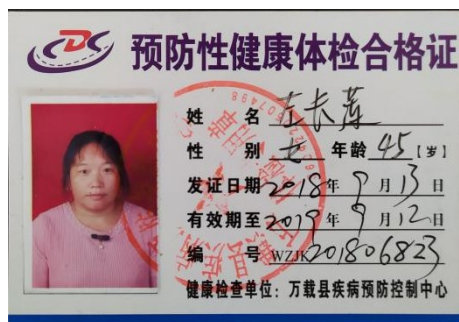 CDC 预防性健康体检合格证
姓 名 左长莲
性 别 女 年龄 45 [岁]
发证日期 2018年 9月13日
有效期至 2019年 9月12日
编 号 WZJK201806823
健康检查单位：万载县疾病预防控制中心